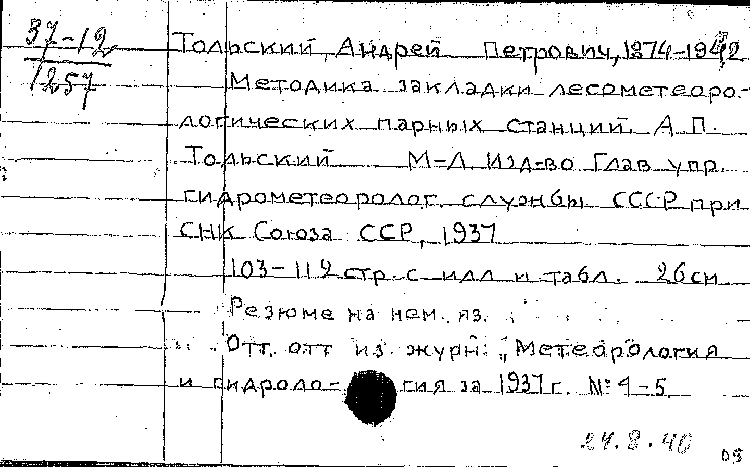 37-12
1257
Тольский, Андрей Петрович, 1874-1942
Методика закладки лесометеоро-
логических парных станций. А.П.
Тольский М-Л Изд-во Глав упр.
гидрометеоролог. службы СССР при
СНК Союза ССР, 1937
103-112 стр. с илл и табл. 26 см
Резюме на нем. яз.
Отт. отт из журн: „Метеорология
и гидроло- гия за 1937 г. № 4-5
24.8.40 DS